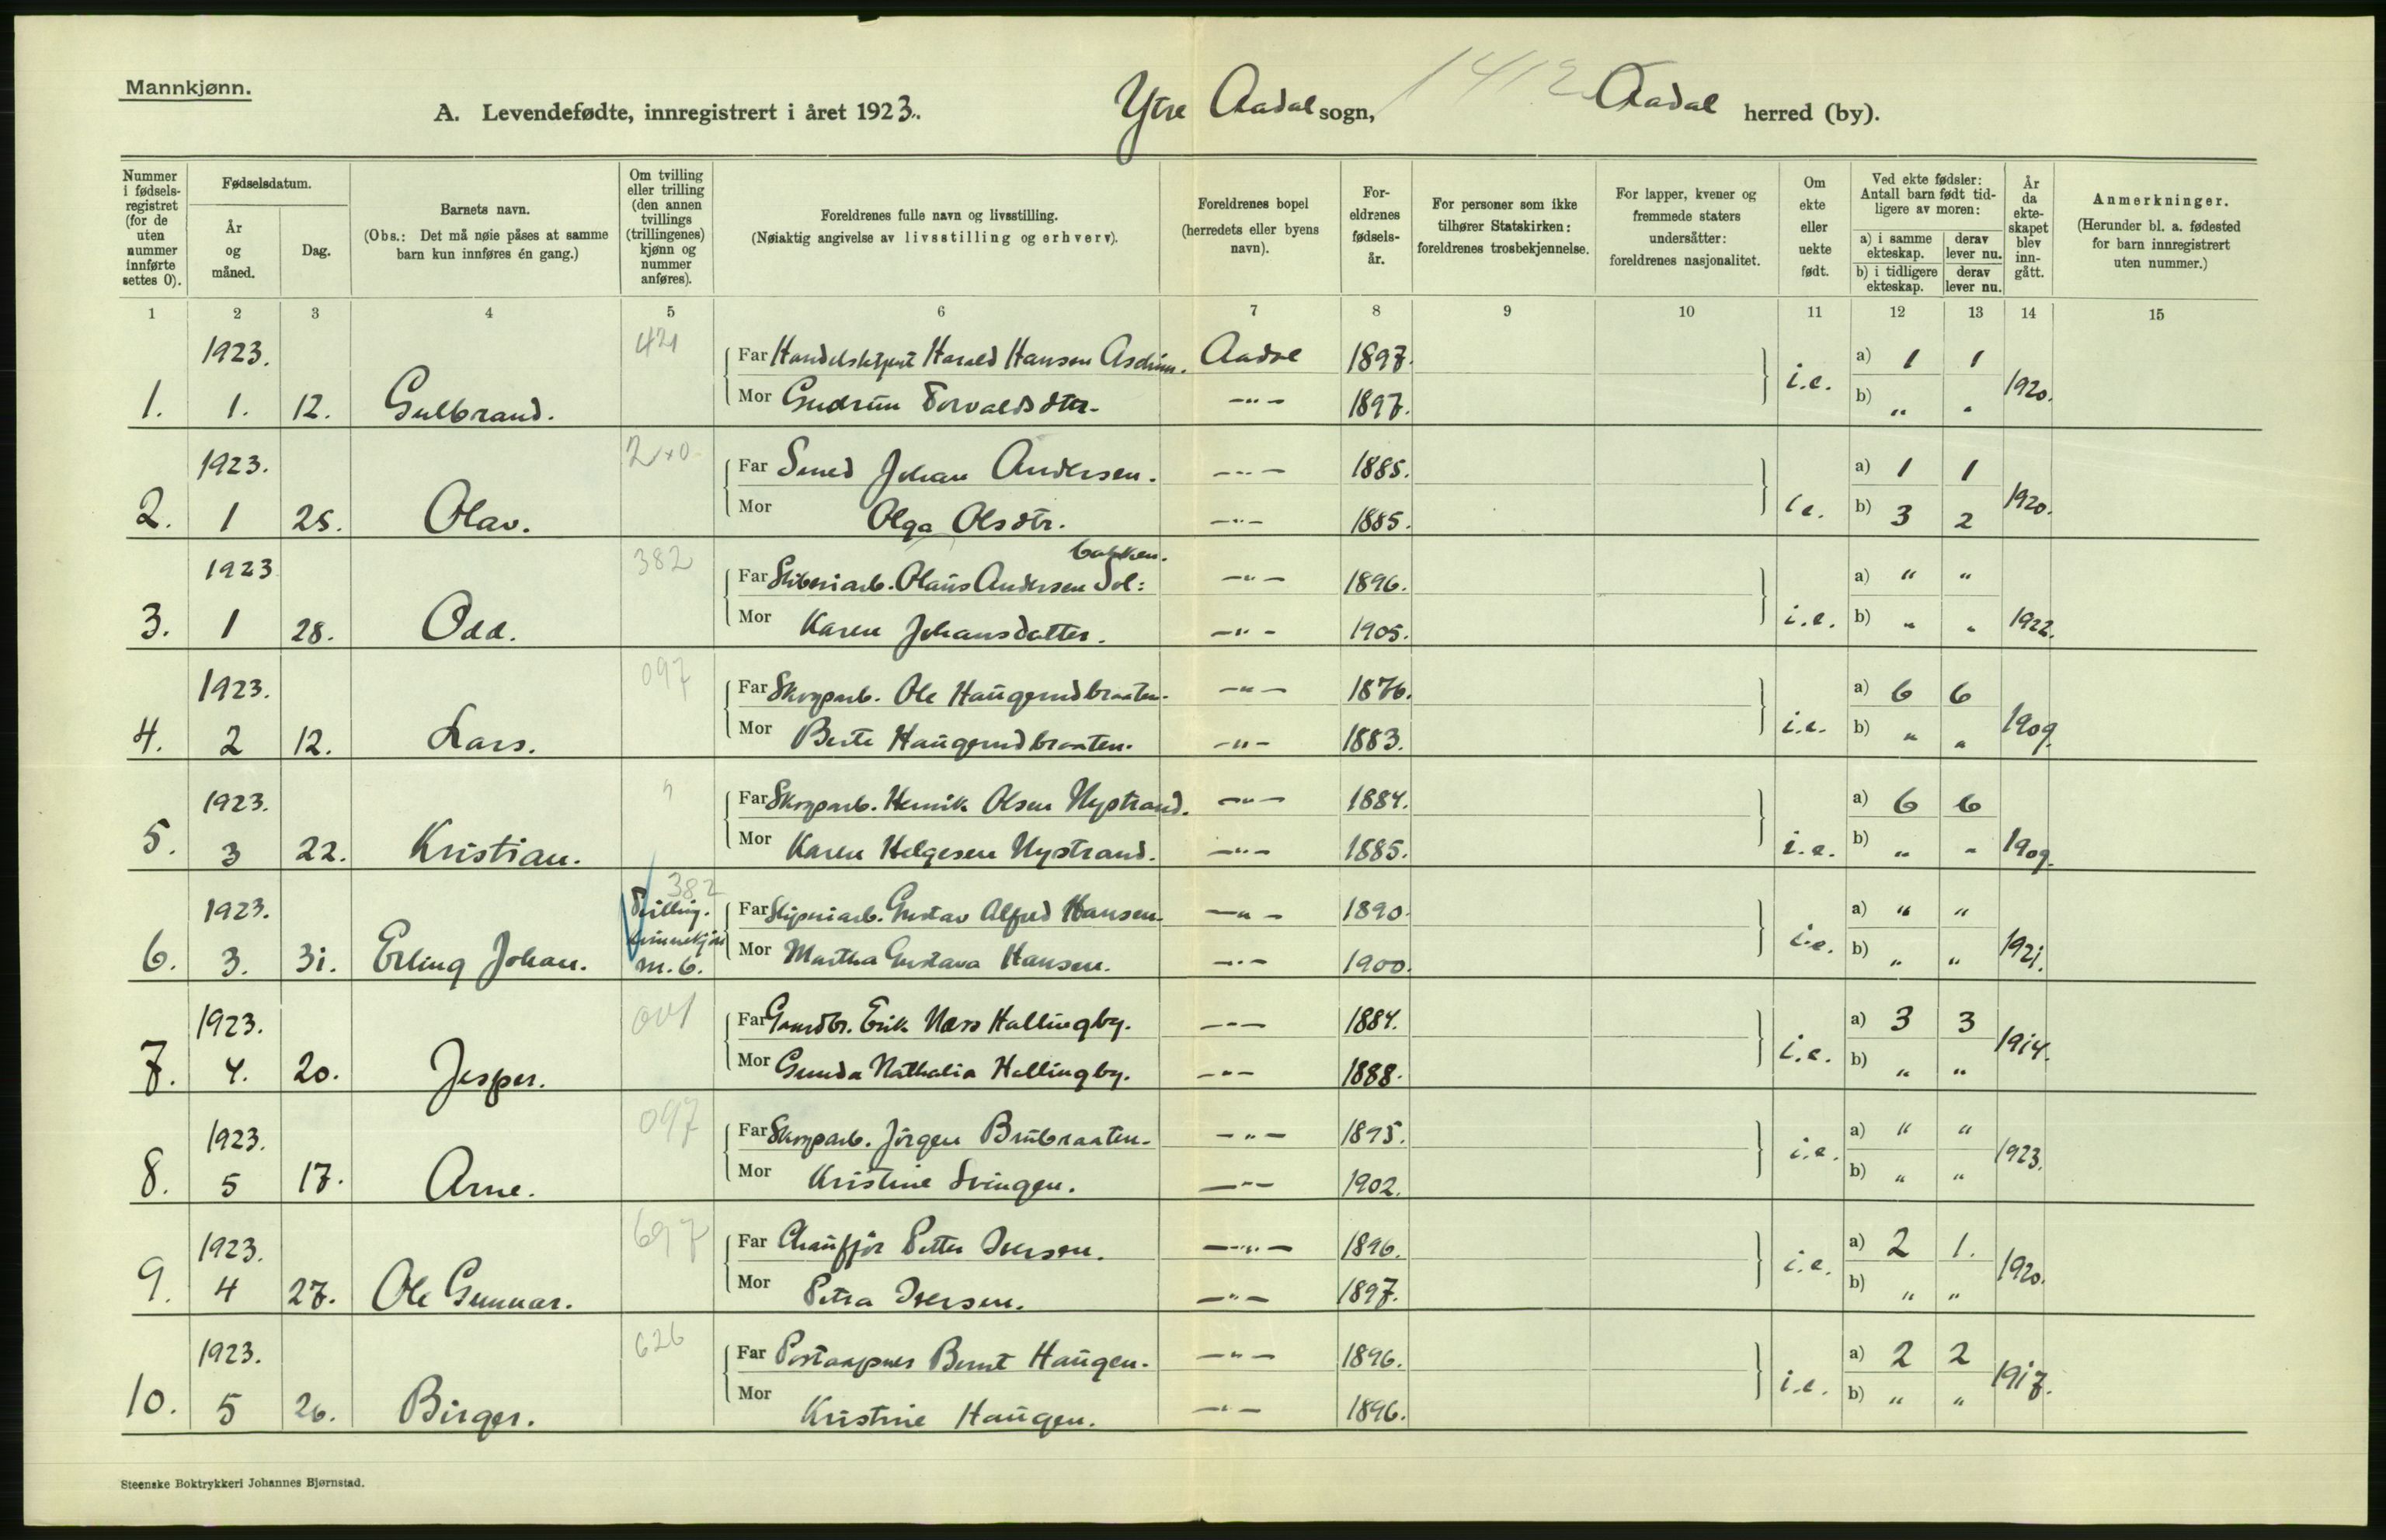 Mannkjønn.
A. Levendefødte, innregistrert i året 1923. Ytre Aadal sogn, 1412 Aadal herred (by).
Nummer i fødsels-registret (for de uten nummer innførte settes 0).
Fødselsdatum.
År og måned.
Dag.
Barnets navn.
(Obs.: Det må nøie påses at samme barn kun innføres én gang.)
Om tvilling eller trilling (den annen tvillings (trillingenes) kjønn og nummer anføres).
Foreldrenes fulle navn og livsstilling.
(Nøiaktig angivelse av livsstilling og erhverv).
Foreldrenes bopel (herredets eller byens navn).
For-eldrenes fødsels-år.
For personer som ikke tilhører Statskirken: foreldrenes trosbekjennelse.
For lapper, kvener og fremmede staters undersåtter: foreldrenes nasjonalitet.
Om ekte eller uekte født.
Ved ekte fødsler: Antall barn født tid-ligere av moren:
a) i samme ekteskap. derav lever nu.
b) i tidligere ekteskap. derav lever nu.
År da ekte-skapet blev inn-gått.
Anmerkninger.
(Herunder bl. a. fødested for barn innregistrert uten nummer.)
1 2 3 4 5 6 7 8 9 10 11 12 13 14 15
1923. 421 Far Harald Hansen Aadal 1897. a) 1 1
1. 1. 12. Gulbrand. Mor Gudrun Torvaldsdtr. -"- 1897. i.e. b) " " 1920.
1923. 2+0 Far Smed Johan Andersen. -"- 1885. a) 1 1
2. 1 25. Olav. Mor Olga Olsdtr. -"- 1885. i.e. b) 3 2 1920.
bakken.
1923 382 Far Sliberiarb. Olaus Andersen Sol: -"- 1896. a) " "
3. 1 28. Odd. Mor Karen Johansdatter. -"- 1905. i.e. b) " " 1922.
1923. 097 Far Skogsarb. Ole Haugerudbraaten. -"- 1876. a) 6 6
4. 2 12. Lars. Mor Berte Haugerudbraaten. -"- 1883. i.e. b) " " 1909.
1923. " Far Skogsarb. Henrik Olsen Nystrand. -"- 1884. a) 6 6
5. 3 22. Kristian. Mor Karen Helgesen Nystrand. -"- 1885. i.e. b) " " 1909.
1923. 382 Tvilling. Far Sliperiarb. Gustav Alfred Hansen. -"- 1890. a) " "
6. 3. 31. Erling Johan. kvinnekjøn m. 6. Mor Martha Gustava Hansen. -"- 1900. i.e. b) " " 1921.
1923. 001 Far Gaardbr. Erik Næss Hallingby. -"- 1884. a) 3 3
7. 4. 20. Jesper. Mor Gunda Nathalia Hallingby. -"- 1888. i.e. b) " " 1914.
1923. 097 Far Skogsarb. Jörgen Brubraaten. -"- 1895. a) " "
8. 5 17. Arne. Mor Kristine Svingen. -"- 1902. i.e. b) " " 1923.
1923. 697 Far Chauffør Petter Iversen. -"- 1896. a) 2 1.
9. 4 27. Ole Gunnar. Mor Petra Iversen. -"- 1897. i.e. b) " " 1920.
1923. 626 Far Postaapner Bernt Haugen. -"- 1896. a) 2 2
10. 5 26. Birger. Mor Kristine Haugen. -"- 1896. i.e. b) " " 1917.
Steenske Boktrykkeri Johannes Bjørnstad.